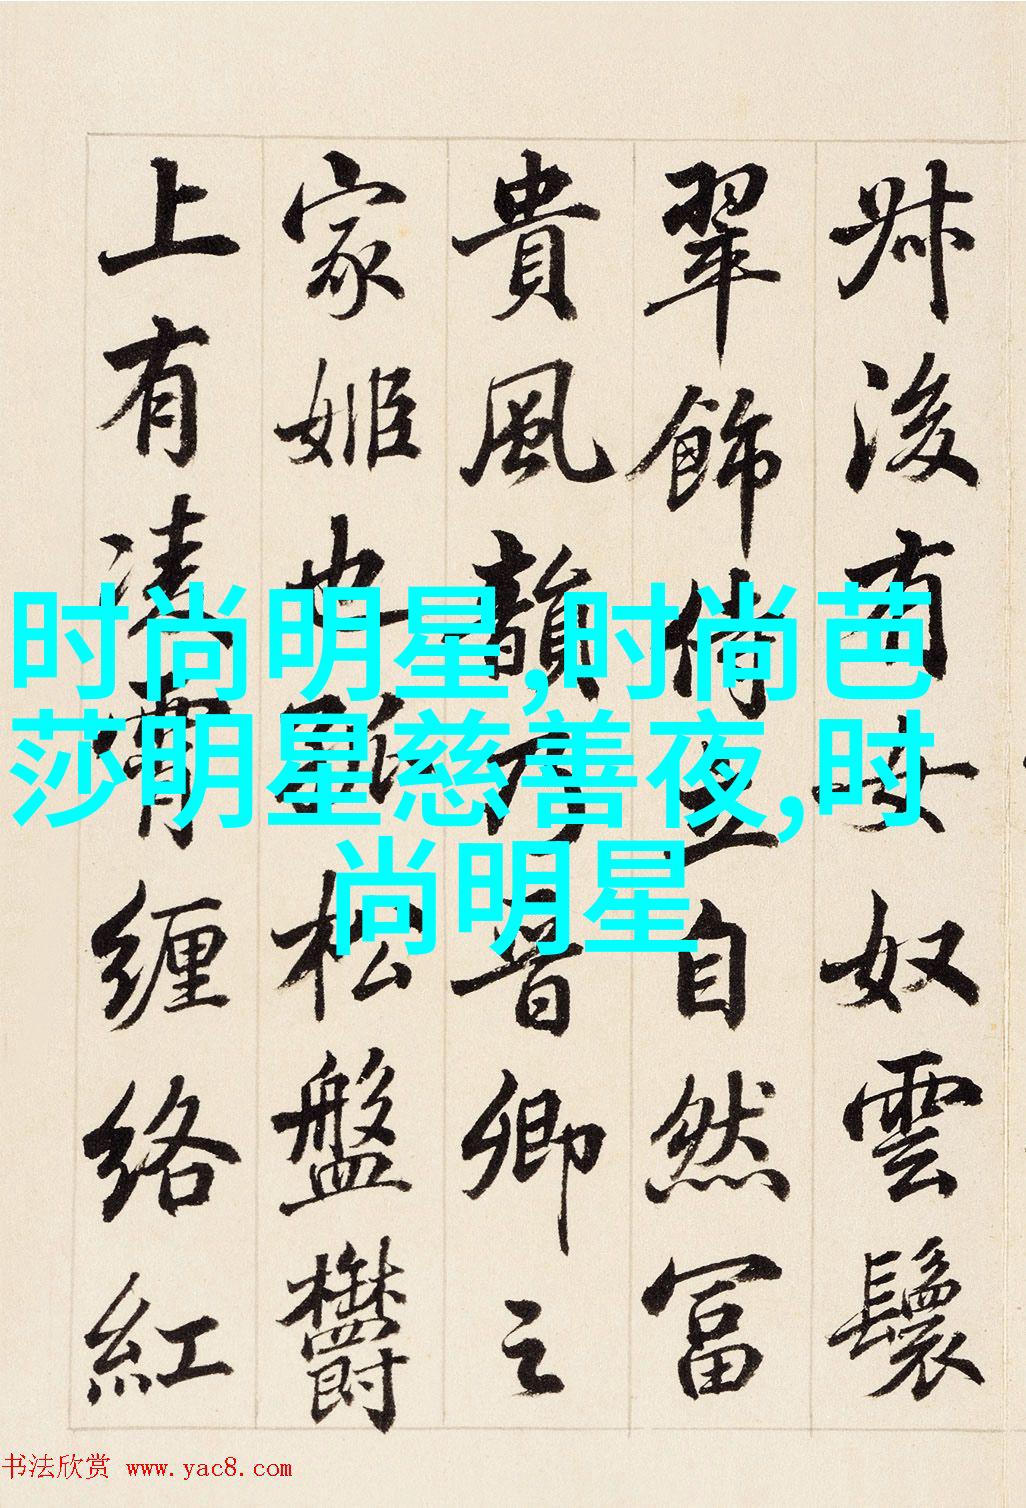 叔後有女奴雲鬟
翠飾侍立自然富
貴風韻乃晉卿之
家姬也孤松盤鬱
上有凌霄纏絡紅
时尚明星,时尚芭
莎明星慈善夜,时
尚明星
书法欣赏 www.yac8.com